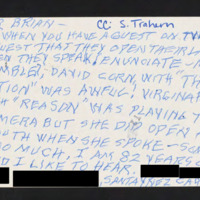 BRIAN— CC: S. Trahern
WHEN YOU HAVE A GUEST ON TV
UEST THAT THEY OPEN THEIR L
EN THEY SPEAK! ENUNCIATE—
MBLE!, DAVID CORN, WITH "TH
TION" WAS AWFUL! VIRGINIA
H "REASON" WAS PLAYING T
MERA BUT SHE DID OPEN
UTH WHEN SHE SPOKE—SO
SO MUCH. I AM 82 YEARS O
D I LIKE TO HEAR.
SANTA YNEZ CA